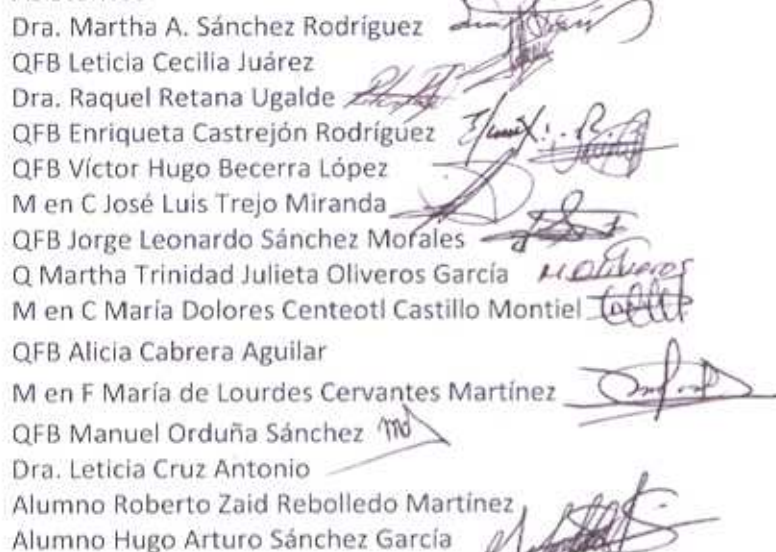 Dra. Martha A. Sánchez Rodríguez
QFB Leticia Cecilia Juárez
Dra. Raquel Retana Ugalde
QFB Enriqueta Castrejón Rodríguez
QFB Víctor Hugo Becerra López
M en C José Luis Trejo Miranda
QFB Jorge Leonardo Sánchez Morales
Q Martha Trinidad Julieta Oliveros García M. Oliveros
M en C María Dolores Centeotl Castillo Montiel
QFB Alicia Cabrera Aguilar
M en F María de Lourdes Cervantes Martínez
QFB Manuel Orduña Sánchez
Dra. Leticia Cruz Antonio
Alumno Roberto Zaid Rebolledo Martínez
Alumno Hugo Arturo Sánchez García